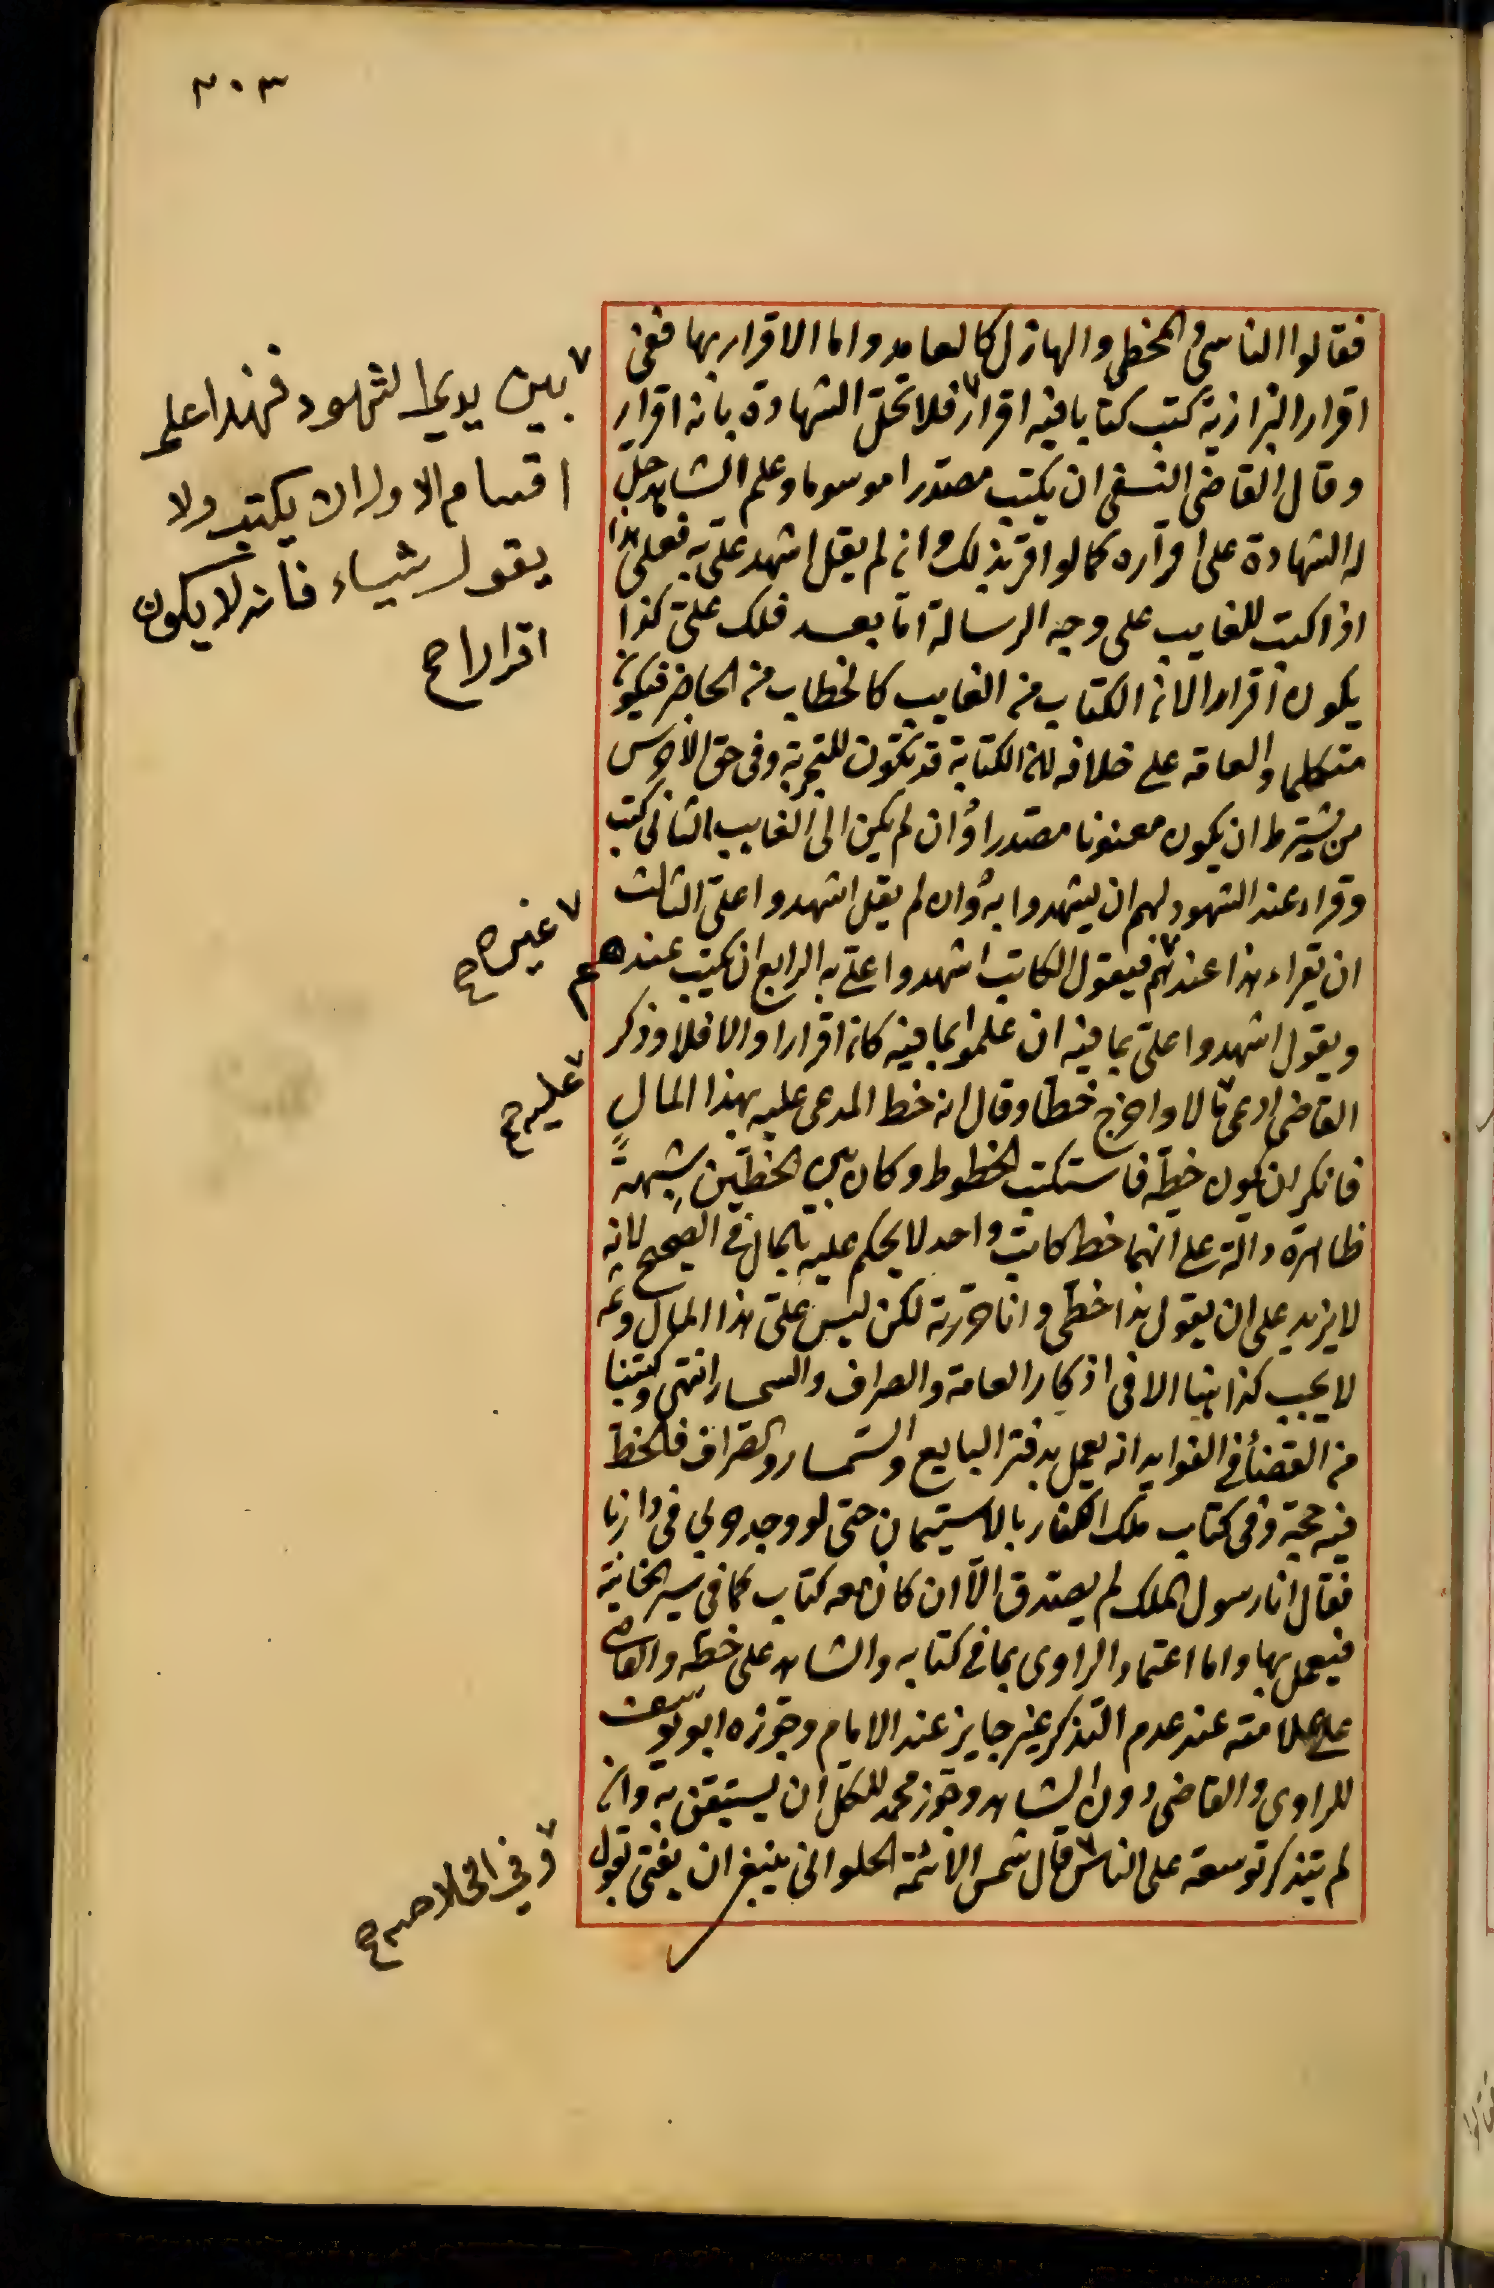 ٣٠٣
فقالوا الناسى والمخطى والهازل كالعامد واما الاقرار بها ففى
اقرار البزازية كتب كتابا فيه اقرار ٧ فلا تحل الشهادة بانه اقرار
وقال القاضى النسفى ان يكتب مصدرا موسوما وعلم الشاهد حل
له الشهادة على اقراره كما لو اقر بذلك وان لم يقل اشهد على به فعلى هذا
اذا كتب للغايب على وجه الرسالة اما بعد فلك على كذا
يكون اقرارا لان الكتاب من الغايب كالخطاب من الحاضر فيكون
متكلما والعامة على خلافه لان الكتابة قد تكون للتجربة وفى حق الاخرس
من يشترط ان يكون معنونا مصدرا وان لم يكن الى الغايب الثانى كتب
وقراء عند الشهود لهم ان يشهدوا به وان لم يقل اشهدوا على الثالث
ان يقراء هذا عندهم ٧ فيقول الكاتب اشهدوا على به الرابع ان يكتب عندهم
ويقول اشهدوا على بما فيه ان علموا بما فيه كان اقرارا والا فلا وذكر
القاضى ادعى ٧ مالا واخرج خطا وقال انه خط المدعى عليه بهذا المال
فانكر ان يكون خطه فاستكتب الخطوط وكان بين الخطين شبهة
ظاهرة دالة على انهما خط كاتب واحد لا يحكم عليه بالمال فى الصحيح لانه
لا يزيد على ان يقول هذا خطى وانا حررته لكن ليس على هذا المال وثمه
لا يجب كذا هنا الا فى اذكار العامة والصراف والسمسار انتهى وكتبنا
من القضأ فى الفوايد انه يعمل بدفتر البايع والسمسار والصراف فالخط
فيه حجة وفى كتاب ملك الكفار بالاستيمان حتى لو وجد حربى فى دارنا
فقال انا رسول الملك لم يصدق الا ان كان معه كتاب كما فى سير الخانية
فيعمل بها واما اعتماد الراوى بما فى كتابه والشاهد على خطه والقاضى
على علامته عند عدم التذكر غير جايز عند الامام وجوزه ابو يوسف
للراوى والقاضى دون الشاهد وجوز محمد للكل ان يستيقن به وان
لم يتذكر توسعة على الناس ٧ قال شمس الائمة الحلوانى ينبغى ان يفتى بقول
٧ بين يدي الشهود فهذا على
اقسام الاول ان يكتب ولا
يقول شياء فانه لا يكون
اقرارا صح
٧ غيره صح
٧ عليه صح
٧ وفي الخلاصه صح